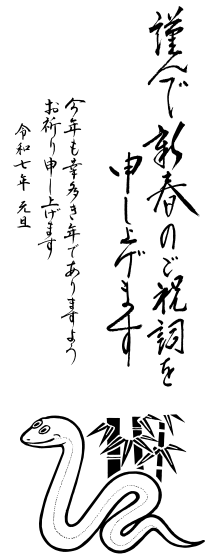 謹んで新春のご祝詞を
申し上げます
今年も幸多き年でありますよう
お祈り申し上げます
令和七年 元旦